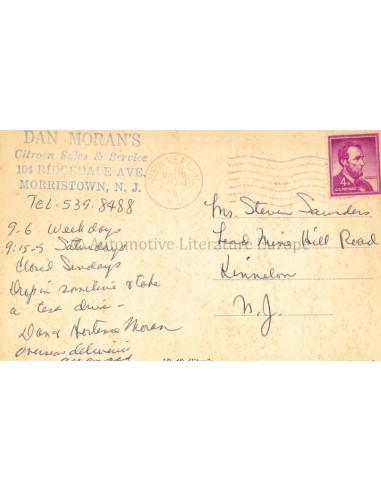 DAN MORAN'S
Citroen Sales & Service
104 RIDGEDALE AVE.
MORRISTOWN, N. J.
TEL-539-8488
9-6 Weekdays
9:15-5 Saturdays
Closed Sundays
Drop in sometime & take
a test drive -
Dan & Hortense Moran
overseas deliveries
4¢
Mr. Steven Saunders
Lead Mine Hill Road
Kinnelon
N.J.
Automotive Literature